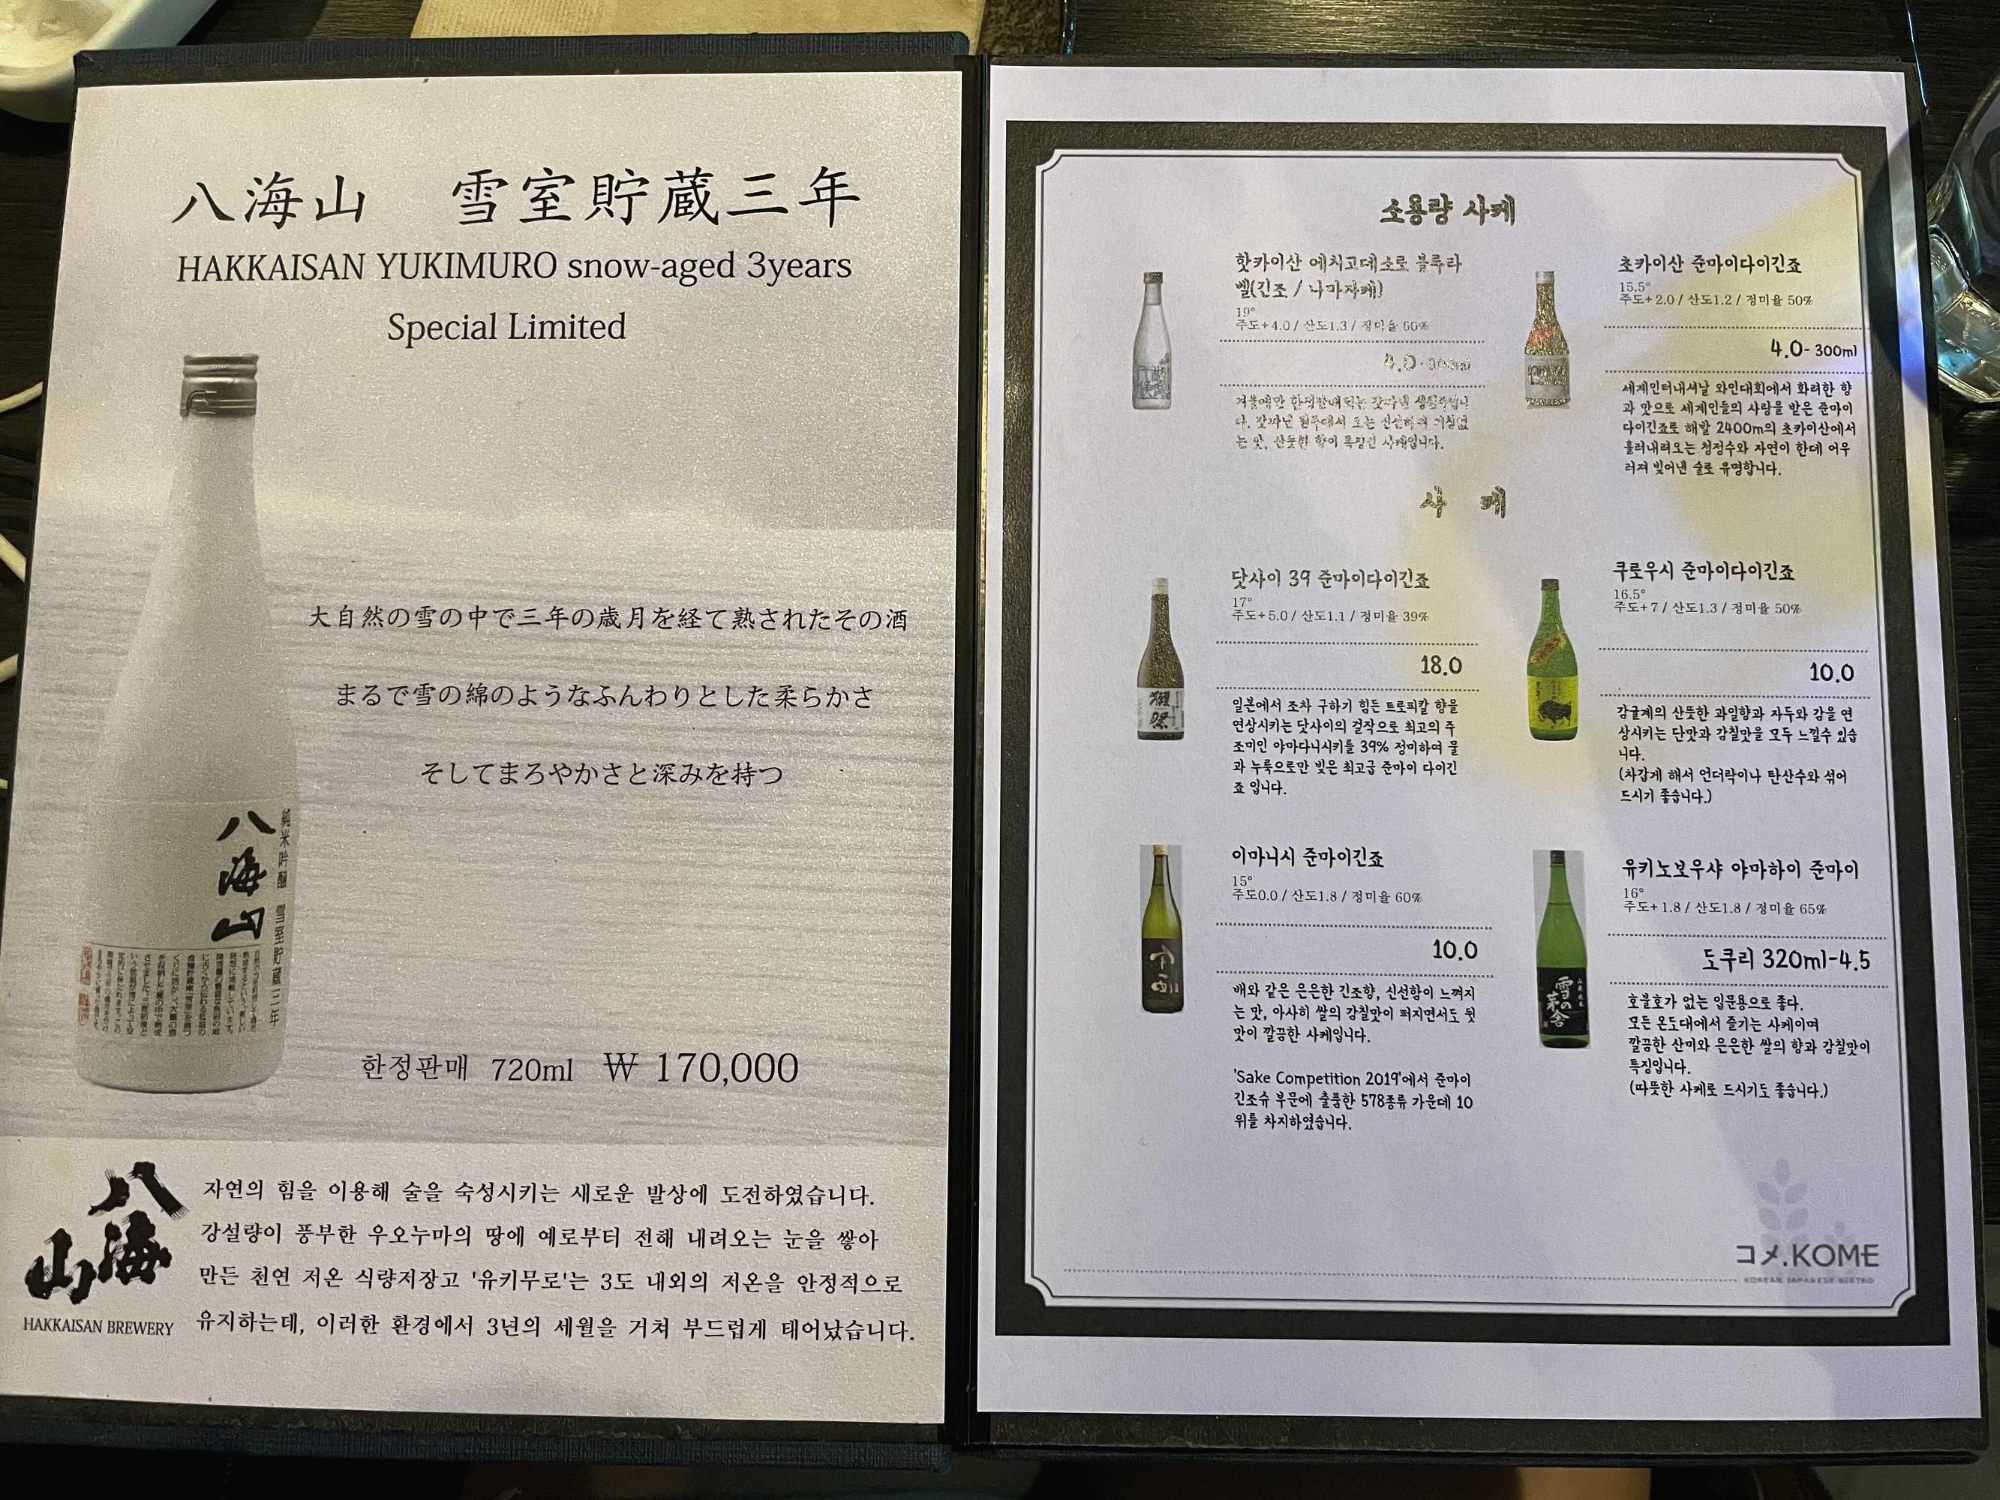 八海山　雪室貯蔵三年
HAKKAISAN YUKIMURO snow-aged 3years
Special Limited
大自然の雪の中で三年の歳月を経て熟されたその酒
まるで雪の綿のようなふんわりとした柔らかさ
そしてまろやかさと深みを持つ
八海山
純米吟醸 雪室貯蔵三年
한정판매 720ml ₩ 170,000
八海山
HAKKAISAN BREWERY
자연의 힘을 이용해 술을 숙성시키는 새로운 발상에 도전하였습니다.
강설량이 풍부한 우오누마의 땅에 예로부터 전해 내려오는 눈을 쌓아
만든 천연 저온 식량저장고 '유키무로'는 3도 내외의 저온을 안정적으로
유지하는데, 이러한 환경에서 3년의 세월을 거쳐 부드럽게 태어났습니다.
소용량 사케
핫카이산 에치고데소로 블루라
벨(긴조 / 나마자케)
19°
주도+4.0 / 산도1.3 / 정미율 60%
4.0-300ml
겨울에만 한정판매되는 갓짜낸 생원주입니
다. 갓짜낸 원주에서 오는 신선하며 거침없
는 맛, 산뜻한 향이 특징인 사케입니다.
초카이산 준마이다이긴죠
15.5°
주도+2.0 / 산도1.2 / 정미율 50%
4.0- 300ml
세계인터내셔날 와인대회에서 화려한 향
과 맛으로 세계인들의 사랑을 받은 준마이
다이긴죠로 해발 2400m의 초카이산에서
흘러내려오는 청정수와 자연이 한데 어우
러져 빚어낸 술로 유명합니다.
사 케
닷사이 39 준마이다이긴죠
17°
주도+5.0 / 산도1.1 / 정미율 39%
18.0
일본에서 조차 구하기 힘든 트로피칼 향을
연상시키는 닷사이의 걸작으로 최고의 주
조미인 야마다니시키를 39% 정미하여 물
과 누룩으로만 빚은 최고급 준마이 다이긴
죠 입니다.
獺祭
쿠로우시 준마이다이긴죠
16.5°
주도+7 / 산도1.3 / 정미율 50%
10.0
감귤계의 산뜻한 과일향과 자두와 감을 연
상시키는 단맛과 감칠맛을 모두 느낄수 있습
니다.
(차갑게 해서 언더락이나 탄산수와 섞어
드시기 좋습니다.)
이마니시 준마이긴죠
15°
주도0.0 / 산도1.8 / 정미율 60%
10.0
배와 같은 은은한 긴조향, 신선함이 느껴지
는 맛, 아사히 쌀의 감칠맛이 퍼지면서도 뒷
맛이 깔끔한 사케입니다.
'Sake Competition 2019'에서 준마이
긴조슈 부문에 출품한 578종류 가운데 10
위를 차지하였습니다.
유키노보우샤 야마하이 준마이
16°
주도+1.8 / 산도1.8 / 정미율 65%
도쿠리 320ml-4.5
호불호가 없는 입문용으로 좋다.
모든 온도대에서 즐기는 사케이며
깔끔한 산미와 은은한 쌀의 향과 감칠맛이
특징입니다.
(따뜻한 사케로 드시기도 좋습니다.)
雪の茅舎
コメ.KOME
KOREAN JAPANESE BISTRO